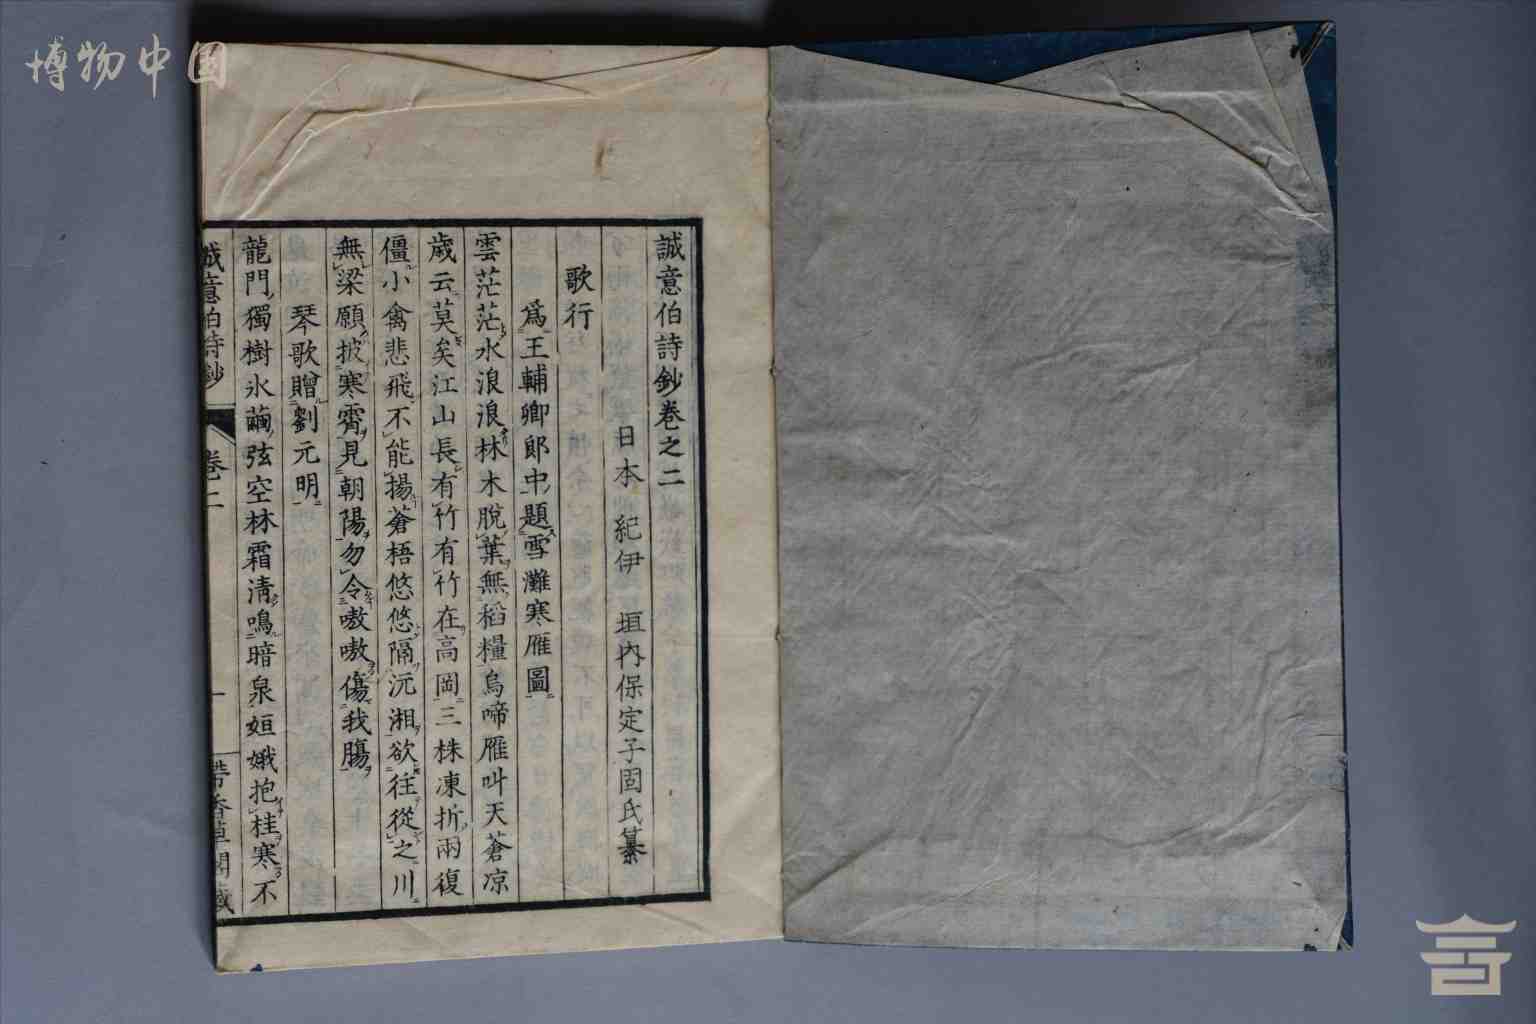 博物中国
誠意伯詩鈔卷之二
日本 紀伊 垣內保定子固氏纂
歌行
爲王輔卿郎中題雪灘寒雁圖
雲茫茫水浪浪林木脫葉無稻糧烏啼雁叫天蒼凉
歲云莫矣江山長有竹有竹在高岡三株凍折兩復
僵小禽悲飛不能揚蒼梧悠悠隔沅湘欲往從之川
無梁願披寒霄見朝陽勿令嗷嗷傷我腸
琴歌贈劉元明
龍門獨樹氷繭弦空林霜淸鳴暗泉姮娥抱桂寒不
誠意伯詩鈔 卷二 一 帶香草閣藏